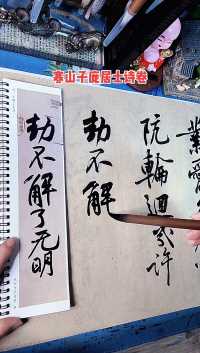 寒山子庞居士诗卷
業愛
阬輪迴幾許
劫不解
劫不解了无明